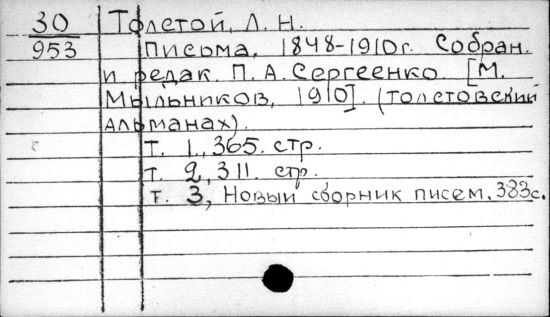 30 Толстой, Л. Н.
953 Письма, 1848-1910г. Собран.
и редак. П. А. Сергеенко. [М.
Мыльников, 1910]. (Толстовский
альманах).
т. 1., 365. стр.
т. 2, 311. стр.
т. 3, Новый сборник писем. 383с.